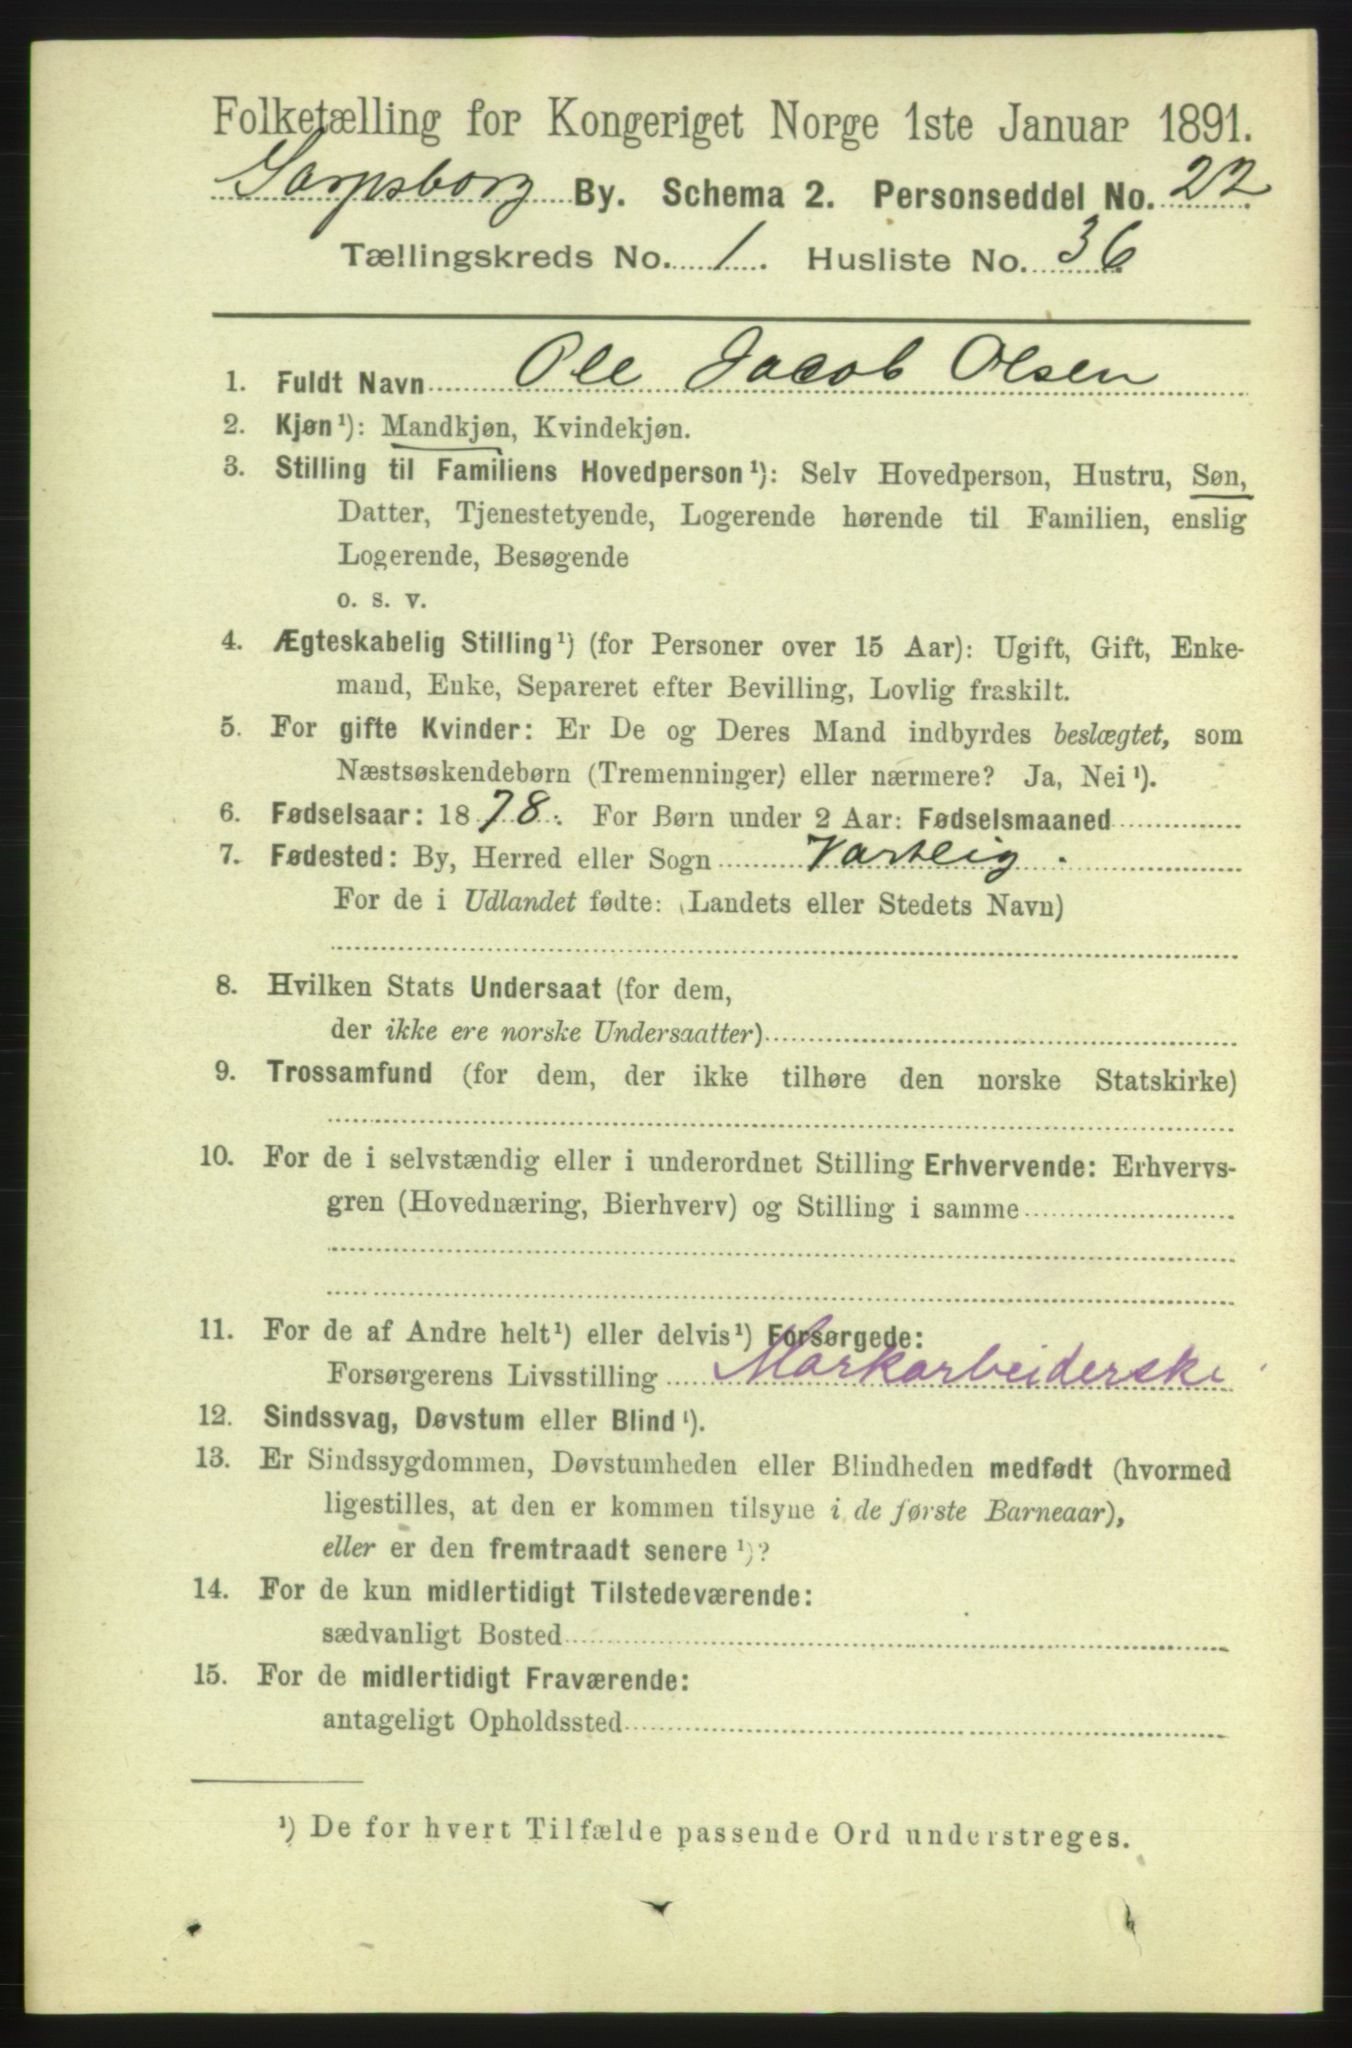 Folketælling for Kongeriget Norge 1ste Januar 1891.
Sarpsborg By. Schema 2. Personseddel No. 22
Tællingskreds No. 1. Husliste No. 36
1. Fuldt Navn Ole Jacob Olsen
2. Kjøn¹): Mandkjøn, Kvindekjøn.
3. Stilling til Familiens Hovedperson¹): Selv Hovedperson, Hustru, Søn,
Datter, Tjenestetyende, Logerende hørende til Familien, enslig
Logerende, Besøgende
o. s. v.
4. Ægteskabelig Stilling¹) (for Personer over 15 Aar): Ugift, Gift, Enke-
mand, Enke, Separeret efter Bevilling, Lovlig fraskilt.
5. For gifte Kvinder: Er De og Deres Mand indbyrdes beslægtet, som
Næstsøskendebørn (Tremenninger) eller nærmere? Ja, Nei¹).
6. Fødselsaar: 1878. For Børn under 2 Aar: Fødselsmaaned
7. Fødested: By, Herred eller Sogn Varteig.
For de i Udlandet fødte: (Landets eller Stedets Navn)
8. Hvilken Stats Undersaat (for dem,
der ikke ere norske Undersaatter)
9. Trossamfund (for dem, der ikke tilhøre den norske Statskirke)
10. For de i selvstændig eller i underordnet Stilling Erhvervende: Erhvervs-
gren (Hovednæring, Bierhverv) og Stilling i samme
11. For de af Andre helt¹) eller delvis¹) Forsørgede:
Forsørgerens Livsstilling Markarbeiderske
12. Sindssvag, Døvstum eller Blind¹).
13. Er Sindssygdommen, Døvstumheden eller Blindheden medfødt (hvormed
ligestilles, at den er kommen tilsyne i de første Barneaar),
eller er den fremtraadt senere¹)?
14. For de kun midlertidigt Tilstedeværende:
sædvanligt Bosted
15. For de midlertidigt Fraværende:
antageligt Opholdssted
¹) De for hvert Tilfælde passende Ord understreges.